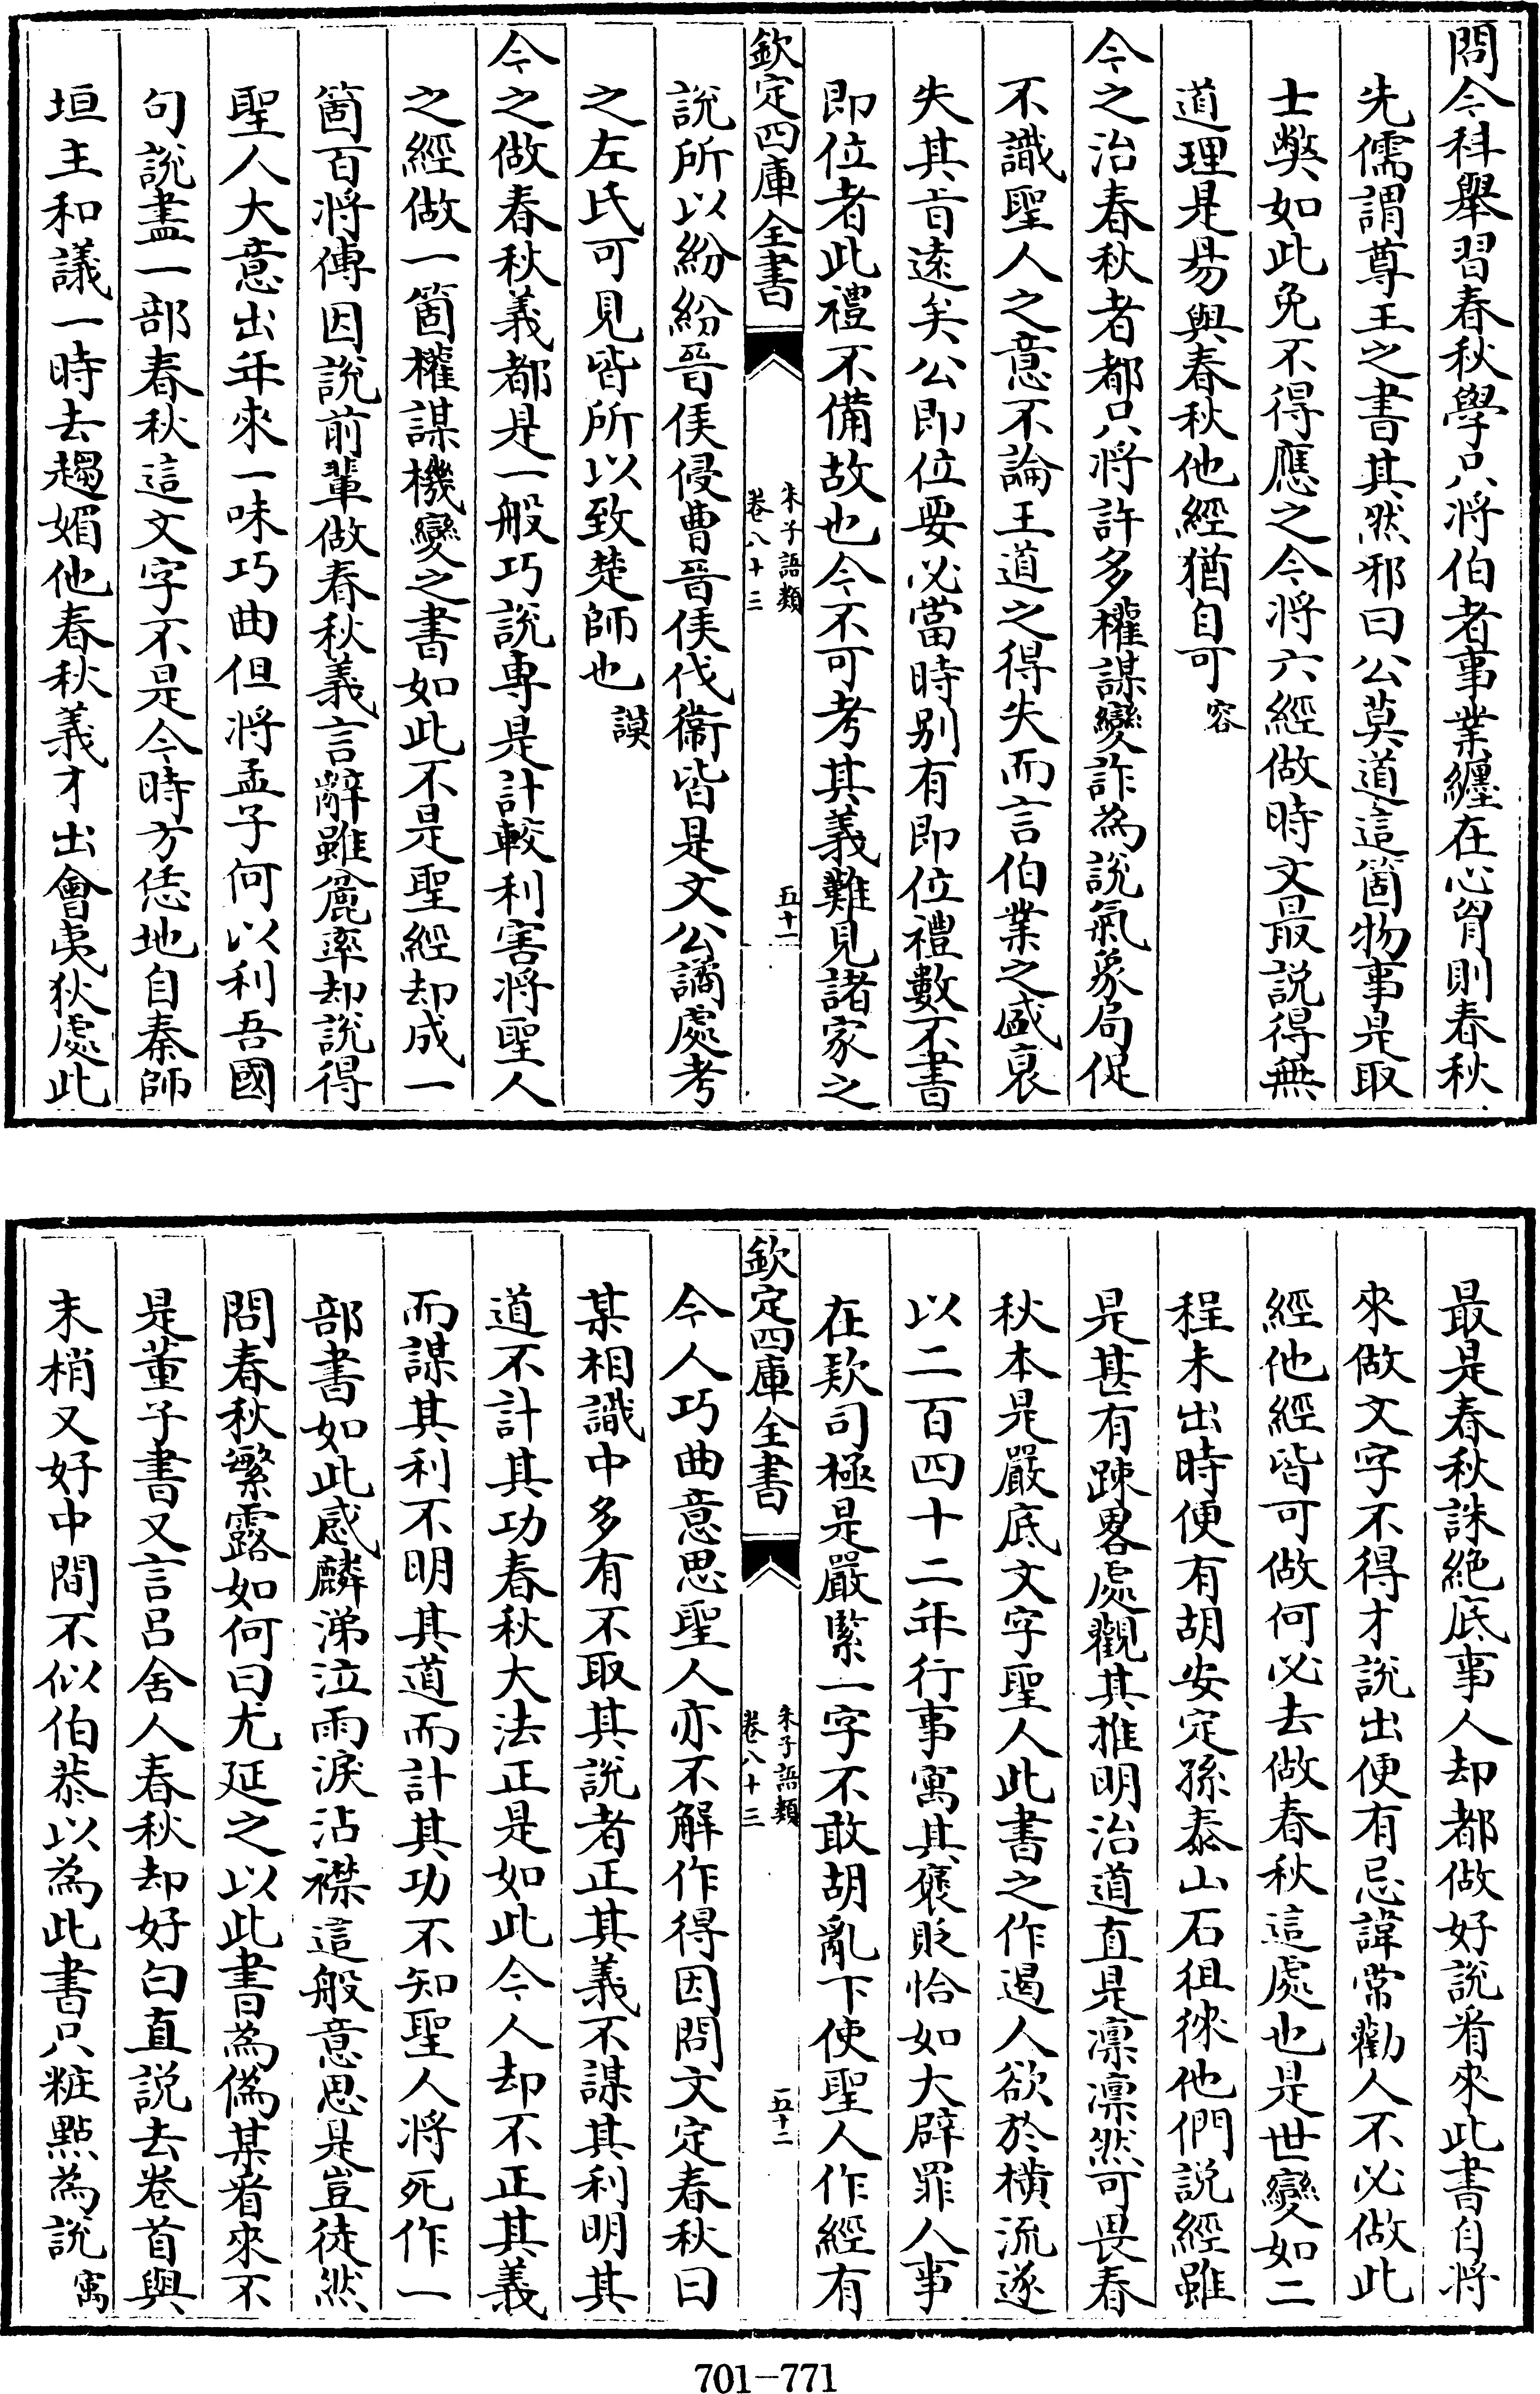 問今科舉習春秋學只將伯者事業纒在心胷則春秋
先儒謂尊王之書其然邪曰公莫道這箇物事是取
士弊如此免不得應之今將六經做時文最説得無
道理是易與春秋他經猶自可容
今之治春秋者都只將許多權謀變詐為說氣象局促
不識聖人之意不論王道之得失而言伯業之盛衰
失其旨遠矣公即位要必當時别有即位禮數不書
即位者此禮不備故也今不可考其義難見諸家之
欽定四庫全書
朱子語類
卷八十三
五十一
說所以紛紛晉侯侵曹晉侯伐衞皆是文公譎處考
之左氏可見皆所以致楚師也謨
今之做春秋義都是一般巧說專是計較利害將聖人
之經做一箇權謀機變之書如此不是聖經却成一
箇百將傳因說前輩做春秋義言辭雖麄率却說得
聖人大意出年來一味巧曲但將孟子何以利吾國
句說盡一部春秋這文字不是今時方恁地自秦師
垣主和議一時去趨媚他春秋義才出會夷狄處此
最是春秋誅絶底事人却都做好說看來此書自將
來做文字不得才說出便有忌諱常勸人不必做此
經他經皆可做何必去做春秋這處也是世變如二
程未出時便有胡安定孫泰山石徂徠他們説經雖
是甚有踈畧處觀其推明治道直是凛凛然可畏春
秋本是嚴底文字聖人此書之作遏人欲於橫流遂
以二百四十二年行事寓其襃貶恰如大辟罪人事
在欵司極是嚴緊一字不敢胡亂下使聖人作經有
欽定四庫全書
朱子語類
卷八十三
五十二
今人巧曲意思聖人亦不解作得因問文定春秋曰
某相識中多有不取其說者正其義不謀其利明其
道不計其功春秋大法正是如此今人却不正其義
而謀其利不明其道而計其功不知聖人將死作一
部書如此感麟涕泣雨淚沾襟這般意思是豈徒然
問春秋繁露如何曰尤延之以此書為僞某看來不
是董子書又言吕舍人春秋却好白直説去卷首與
末梢又好中間不似伯恭以為此書只粧點為說㝢
701—771